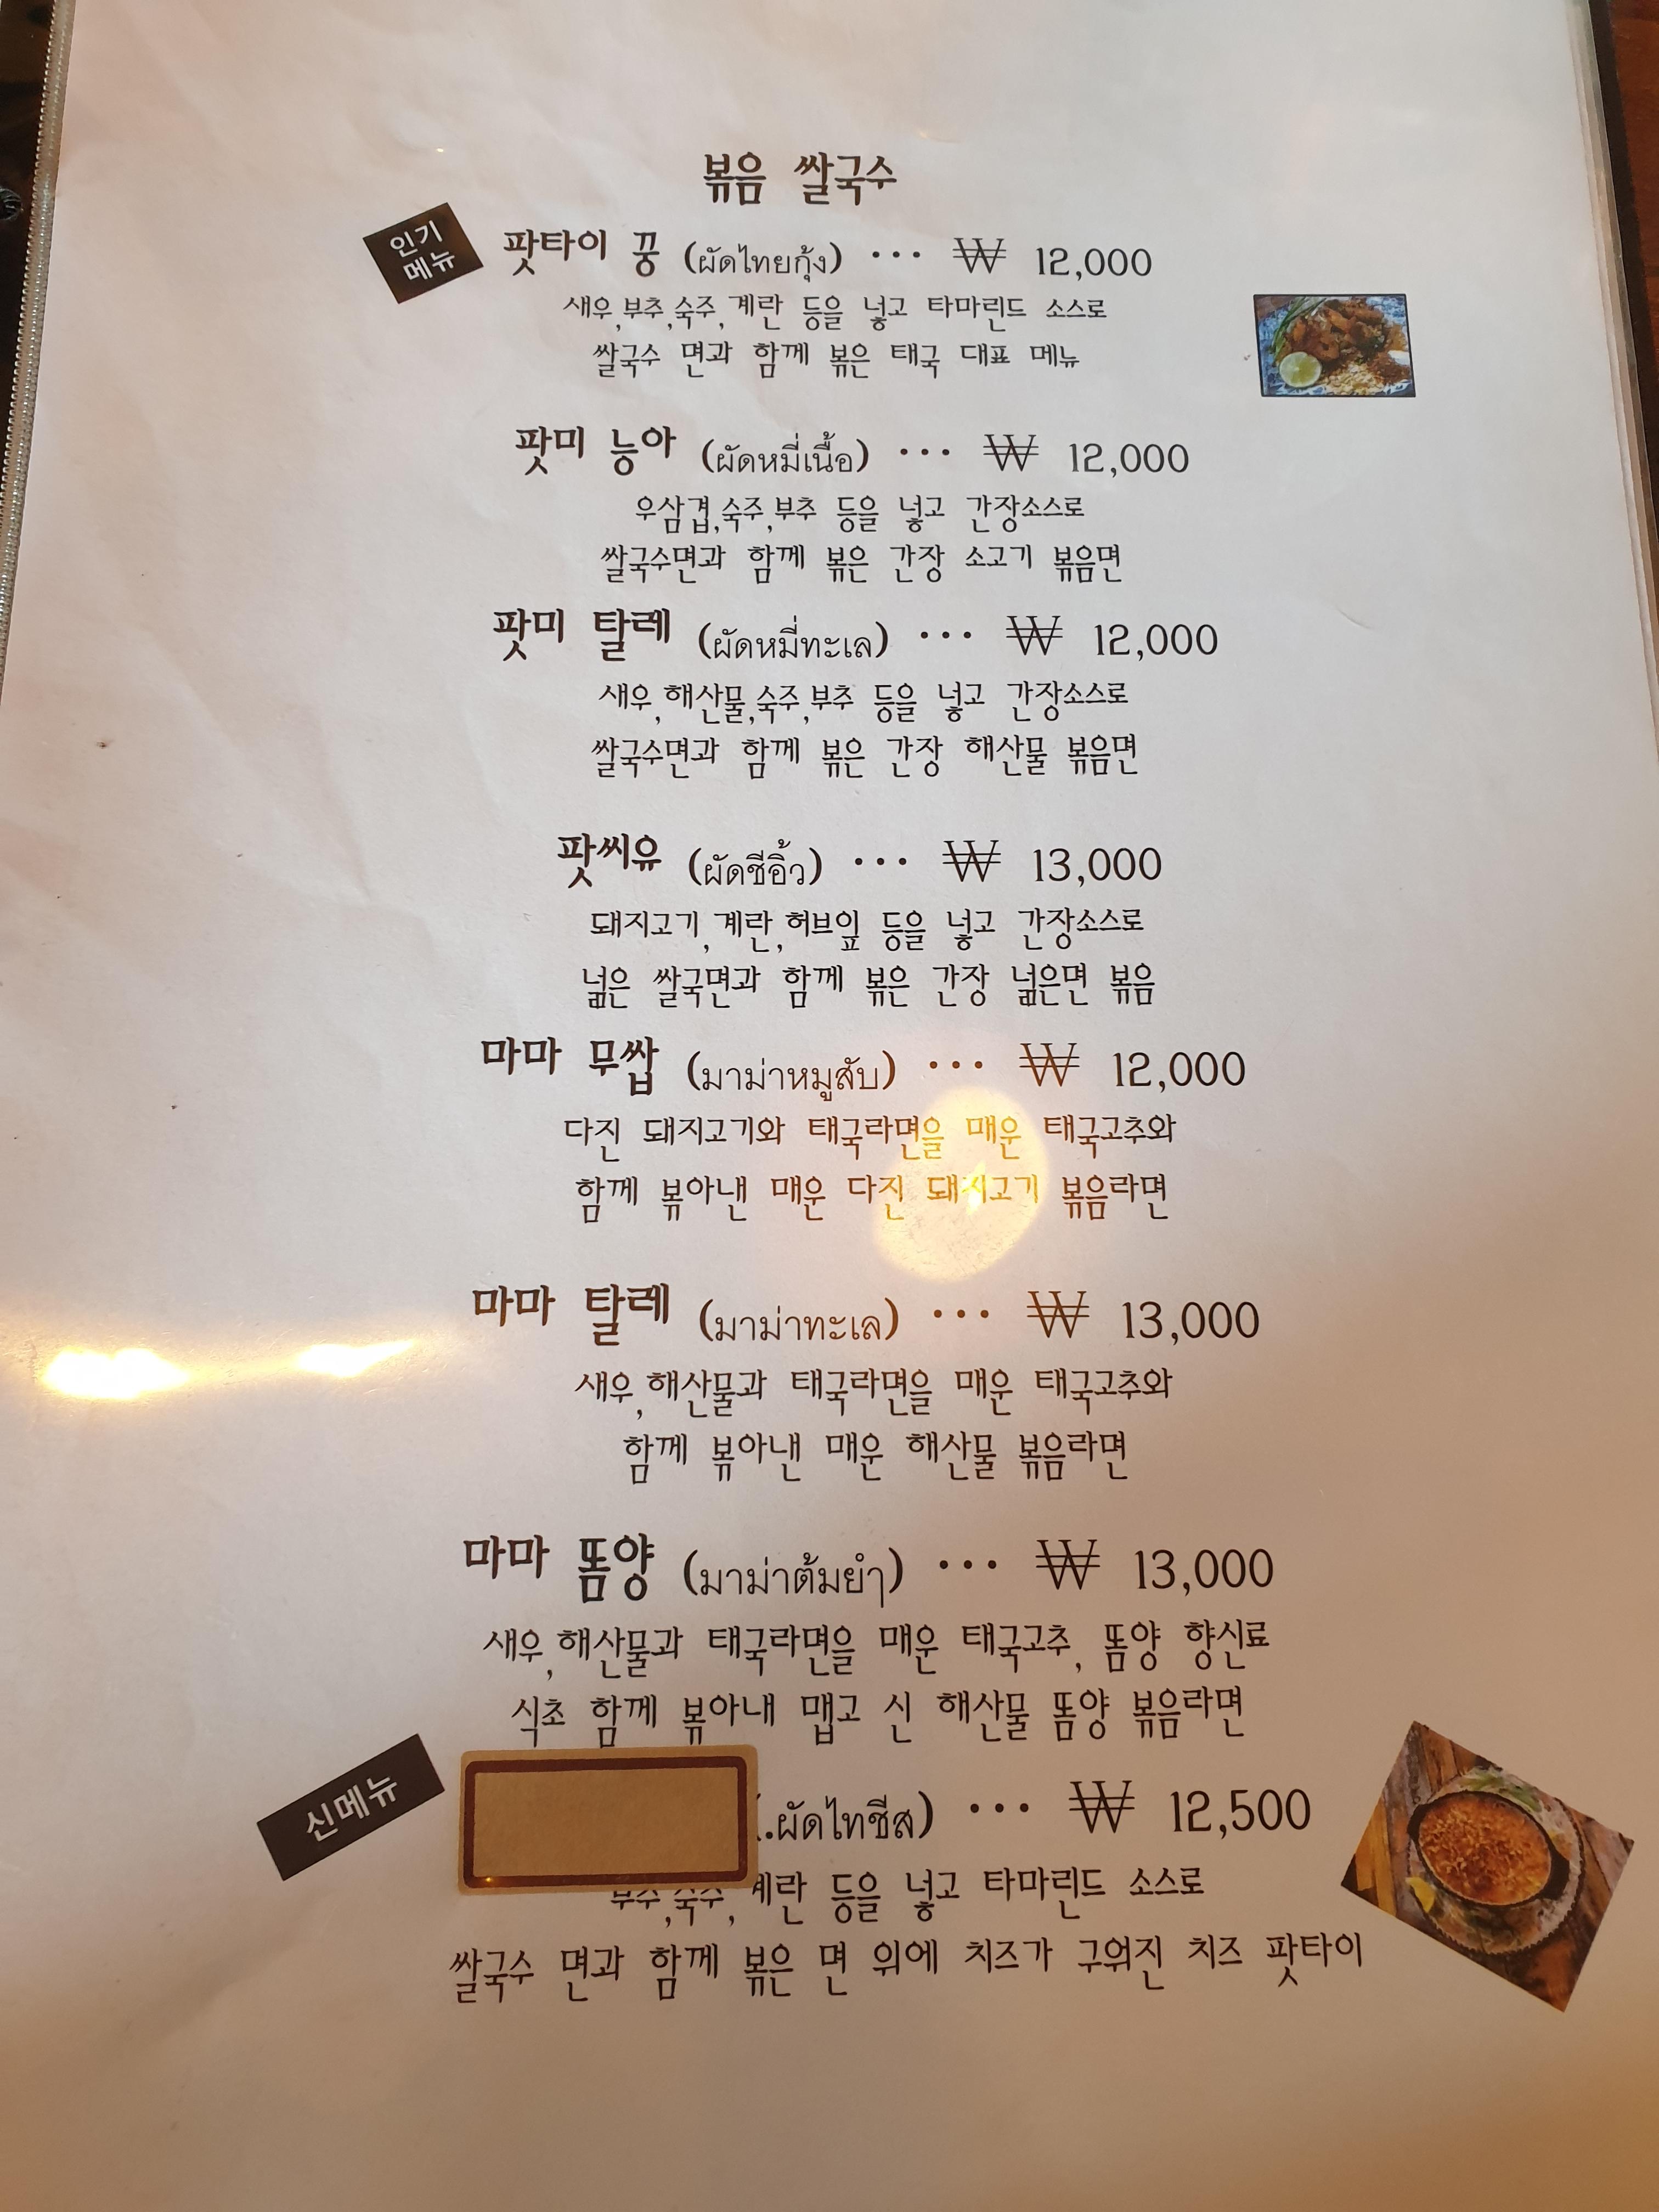 볶음 쌀국수
인기
메뉴
팟타이 꿍 (ผัดไทยกุ้ง) ··· ₩ 12,000
새우,부추,숙주,계란 등을 넣고 타마린드 소스로
쌀국수 면과 함께 볶은 태국 대표 메뉴
팟미 능아 (ผัดหมี่เนื้อ) ··· ₩ 12,000
우삼겹,숙주,부추 등을 넣고 간장소스로
쌀국수면과 함께 볶은 간장 소고기 볶음면
팟미 탈레 (ผัดหมี่ทะเล) ··· ₩ 12,000
새우,해산물,숙주,부추 등을 넣고 간장소스로
쌀국수면과 함께 볶은 간장 해산물 볶음면
팟씨유 (ผัดซีอิ้ว) ··· ₩ 13,000
돼지고기,계란,허브잎 등을 넣고 간장소스로
넓은 쌀국면과 함께 볶은 간장 넓은면 볶음
마마 무쌉 (มาม่าหมูสับ) ··· ₩ 12,000
다진 돼지고기와 태국라면을 매운 태국고추와
함께 볶아낸 매운 다진 돼지고기 볶음라면
마마 탈레 (มาม่าทะเล) ··· ₩ 13,000
새우,해산물과 태국라면을 매운 태국고추와
함께 볶아낸 매운 해산물 볶음라면
마마 똠양 (มาม่าต้มยำ) ··· ₩ 13,000
새우,해산물과 태국라면을 매운 태국고추, 똠양 향신료
식초 함께 볶아내 맵고 신 해산물 똠양 볶음라면
신메뉴
(.ผัดไทชีส) ··· ₩ 12,500
부추,숙주,계란 등을 넣고 타마린드 소스로
쌀국수 면과 함께 볶은 면 위에 치즈가 구워진 치즈 팟타이